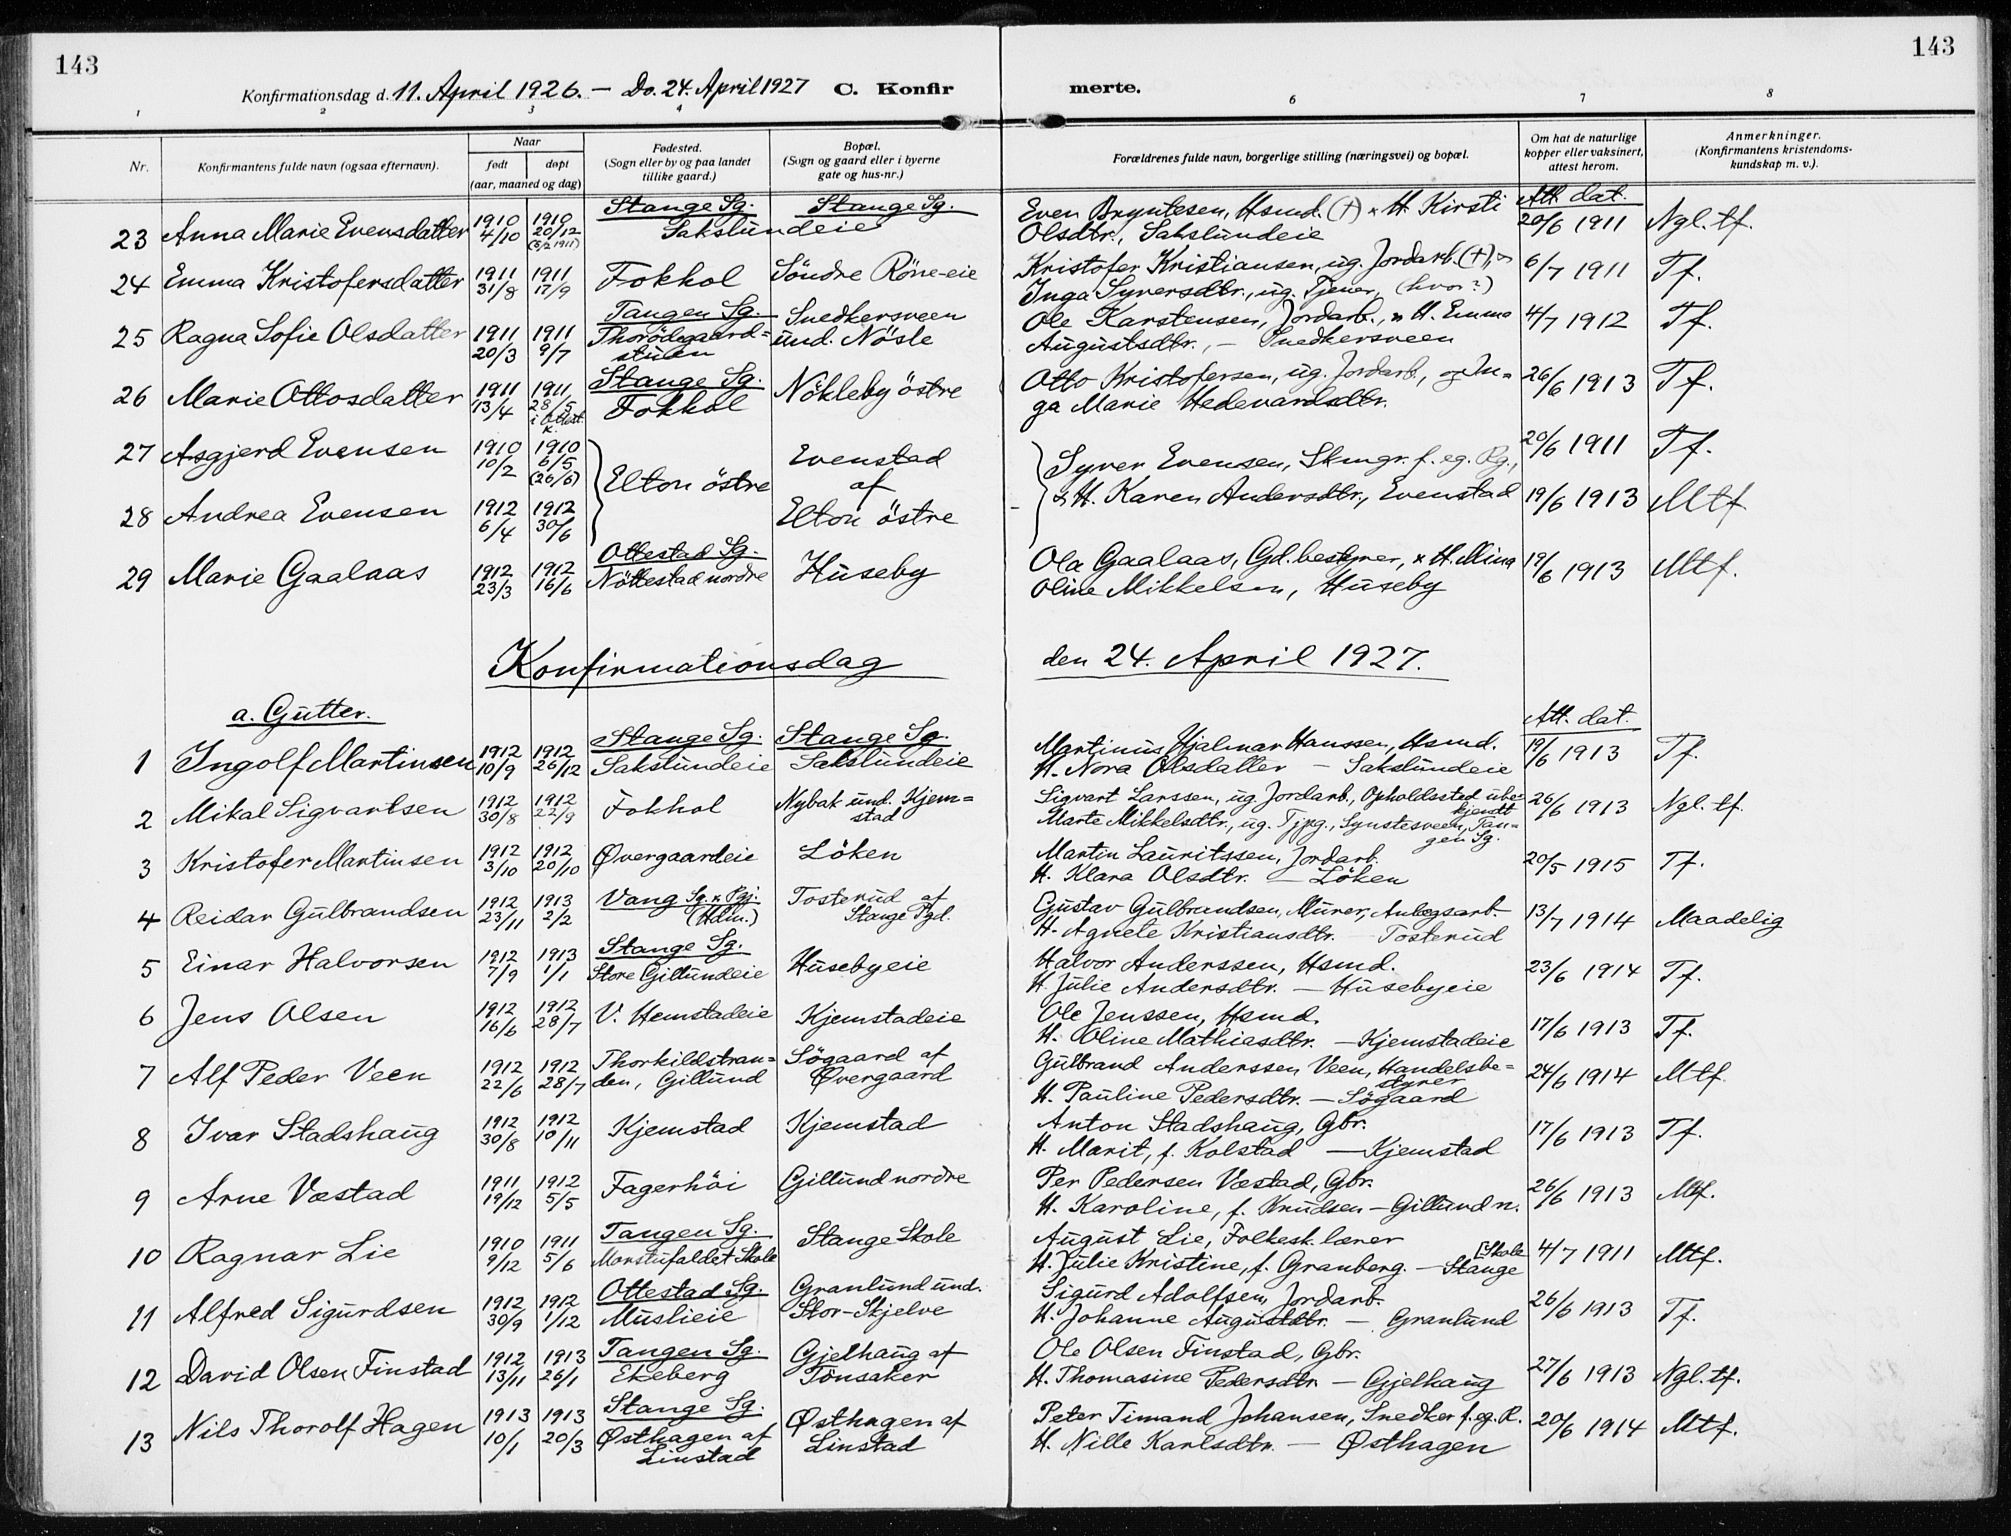 143
143
Konfirmationsdag d. 11. April 1926. — Do. 24. April 1927 C. Konfir merte.
1 2 3 4 6 7 8
Nr.
Konfirmantens fulde navn (ogsaa efternavn).
Naar
født
døpt
(aar, maaned og dag)
Fødested.
(Sogn eller by og paa landet
tillike gaard.)
Bopæl.
(Sogn og gaard eller i byerne
gate og hus-nr.)
Forældrenes fulde navn, borgerlige stilling (næringsvei) og bopæl.
Om hat de naturlige
kopper eller vaksinert,
attest herom.
Anmerkninger.
(Konfirmantens kristendoms-
kundskap m. v.).
Stange Sg. Stange Sg. Att. dat.
23 Anna Marie Evensdatter 1910 4/10 1910 20/12 (5/2 1911) Sakslundeie Even Bryntesen, Hsmd. (†) & H. Kirsti
Olsdtr., Sakslundeie 20/6 1911 Ngl. tf.
24 Emma Kristofersdatter 1911 31/8 1911 17/9 Fokhol Söndre Röne-eie Kristofer Kristiansen, ug. Jordarb. (†), &
Inga Syversdtr., ug. Tjener, (hvor?) 6/7 1911 Tf.
Tangen Sg.
25 Ragna Sofie Olsdatter 1911 20/3 1911 9/7 Thorödegaard=
stuen Snedkersveen
und. Nösle Ole Karstensen, Jordarb., & H. Emma
Augustsdtr., — Snedkersveen 4/7 1912 Tf.
Stange Sg.
26 Marie Ottosdatter 1911 13/4 1911 28/5 i Ottest. k. Fokhol Nökleby östre Otto Kristofersen, ug. Jordarb., og In=
ga Marie Hedevardsdtr. 26/6 1913 Tf.
27 Asgjerd Evensen 1910 10/2 1910 6/5 (26/6) Elton östre Evenstad
af
Elton östre Syver Evensen, Skmgr. f. eg. Rg.,
& H. Karen Andersdtr., Evenstad 20/6 1911 Tf.
28 Andrea Evensen 1912 6/4 1912 30/6 19/6 1913 Mtf
Ottestad Sg.
29 Marie Gaalaas 1912 23/3 1912 16/6 Nöttestad nordre Huseby Ola Gaalaas, Gd. bestyrer, & H. Mina
Oline Mikkelsen, Huseby 19/6 1913 Mtf.
Konfirmationsdag den 24. April 1927.
a. Gutter.
Stange Sg. Stange Sg. Att. dat.
1 Ingolf Martinsen 1912 10/9 1912 26/12 Sakslundeie Sakslundeie Martinus Hjalmar Hanssen, Hsmd.
H. Nora Olsdatter — Sakslundeie 19/6 1913 Tf.
2 Mikal Sigvartsen 1912 30/8 1912 22/9 Fokhol Nybak und. Kjem=
stad Sigvart Larssen, ug. Jordarb., Opholdssted ube=
kjendt
Marte Mikkelsdtr., ug. Tjpg., Synstesveen, Tan=
gen Sg. 26/6 1913 Ngl. tf.
3 Kristofer Martinsen 1912 3/10 1912 20/10 Øvergaardeie Löken Martin Lauritssen, Jordarb.
H. Klara Olsdtr. — Löken 20/5 1915 Tf.
4 Reidar Gulbrandsen 1912 23/11 1913 2/2 Vang Sg. & Pgj.
(Hdm.) Tosterud af
Stange Pgd. Gustav Gulbrandsen, Murer, Anlegsarb.
H. Agnete Kristiansdtr. — Tosterud 13/7 1914 Maadelig
Stange Sg.
5 Einar Halvorsen 1912 7/9 1913 1/1 Store Gillundeie Husebyeie Halvor Anderssen, Hsmd.
H. Julie Andersdtr. — Husebyeie 23/6 1914 Tf.
6 Jens Olsen 1912 16/6 1912 28/7 V. Hemstadeie Kjemstadeie Ole Jenssen, Hsmd.
H. Oline Mathiasdtr. — Kjemstadeie 17/6 1913 Tf.
7 Alf Peder Veen 1912 22/6 1912 28/7 Thorkildstran=
den, Gillund Sögaard af
Øvergaard Gulbrand Anderssen Veen, Handelsbe=
styrer
H. Pauline Pedersdtr. — Sögaard 24/6 1914 Mtf.
8 Ivar Stadshaug 1912 30/8 1912 10/11 Kjemstad Kjemstad Anton Stadshaug, Gbr.
H. Marit, f. Kolstad — Kjemstad 17/6 1913 Tf.
9 Arne Væstad 1911 19/12 1912 5/5 Fagerhöi Gillund nordre Per Pedersen Væstad, Gbr.
H. Karoline, f. Knudsen — Gillund n. 26/6 1913 Mtf.
Tangen Sg.
10 Ragnar Lie 1910 9/12 1911 5/6 Monstufaldet Skole Stange Skole August Lie, Folkesk. lærer
H. Julie Kristine, f. Granberg. — Stange [Skole 4/7 1911 Mtf.
Ottestad Sg.
11 Alfred Sigurdsen 1912 30/9 1912 1/12 Muslieie Granlund und.
Stor-Skjelve Sigurd Adolfsen, Jordarb.
H. Johanne Augustdtr. — Granlund 26/6 1913 Tf.
Tangen Sg.
12 David Olsen Finstad 1912 13/11 1913 26/1 Ekeberg Gjelhaug af
Tönsaker Ole Olsen Finstad, Gbr.
H. Thomasine Pedersdtr — Gjelhaug 27/6 1913 Ngl. tf.
Stange Sg.
13 Nils Thorolf Hagen 1913 10/1 1913 20/3 Østhagen af
Linstad Østhagen af
Linstad Peter Timand Johansen, Snedker f. eg. R.
H. Nille Karlsdtr. — Østhagen 20/6 1914 Mtf.